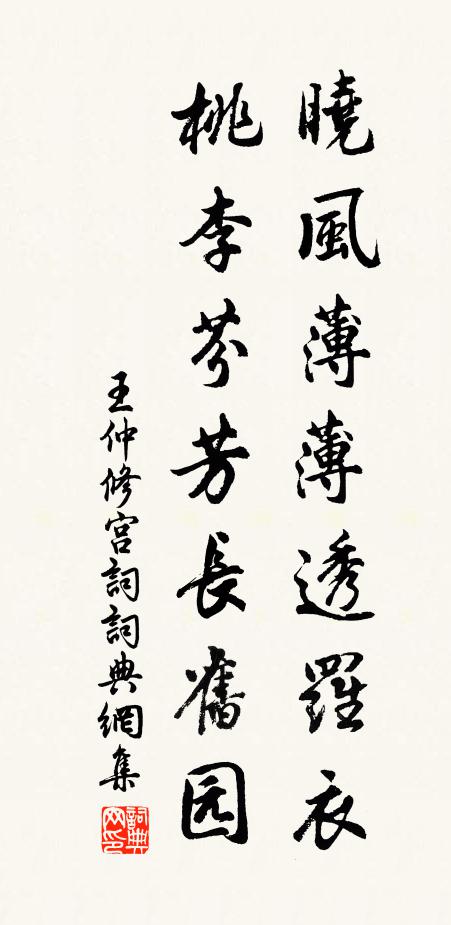 曉風薄薄透羅衣
桃李芬芳長舊园
王仲修宮詞詞典網集
詞典网印